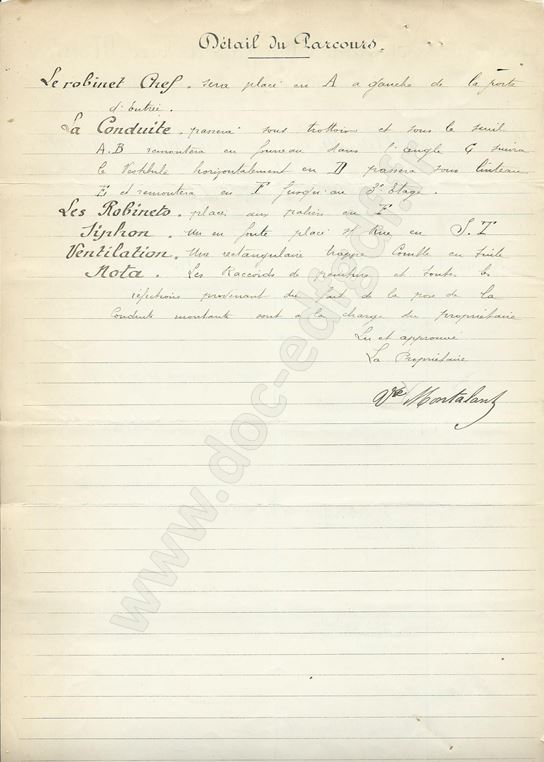 Détail du Parcours.
Le robinet Chef. sera placé en A a gauche de la porte
d'entrée.
La Conduite. passera sous trottoir et sous le seuil
A.B remontera en fourreau dans l'angle C suivra
le Vestibule horizontalement en D passera sous linteau
E et remontera en F jusqu'au 3e étage.
Les Robinets. placés aux paliers en F
Siphon. Un en fonte placé Rue en S.T
Ventilation. Une rectangulaire trappe Comble en tôle
Nota. Les Raccords de peinture et toutes les
réfections provenant du fait de la pose de la
Conduite montante sont a la charge du propriétaire
Lu et approuvé
La Propriétaire
Vve Montalant
www.doc-edfgdf.fr